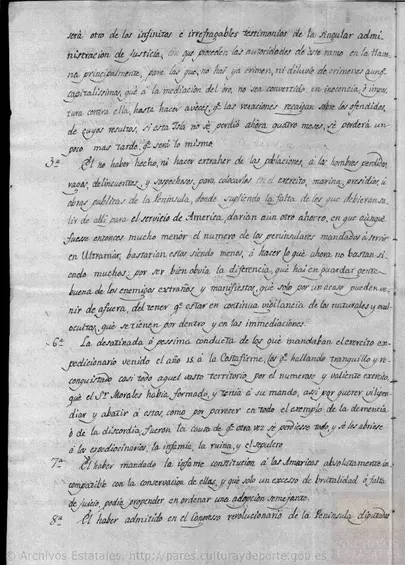 será otro de los infinitos é irrefragables testimonios de la singular admi-
nistracion de Justicia, con que proceden las autoridades de este ramo en la Hava-
na principalmente, para las que, no hay crimen, ni diluvio de crimenes aunq.
capitalissimos, que á la mediacion del oro, no sea convertido en inocencia, é impos-
tura contra ella, hasta hacer aveces, q.e las vexaciones recaigan sobre los ofendidos,
de cuyas resultas, si esta Isla no se perdió ahora quatro meses, se perderá un
poco mas tarde, q.e será lo mismo.
El no haber hecho, ni hacer extraher de las poblaciones, á los hombres perdidos,
vagos, delincuentes, y sospechosos, para colocarlos en el exército, marina, presidios, ú
obras publicas de la Península, donde supliendo la falta de los que debieran sa-
lir de allí para el servicio de America, darian aun otro ahorro, en que aunque
fuese entonces mucho menor el numero de los peninsulares mandados á servir
en Ultramar, bastarian estar siendo menos, á hacer lo que ahora no bastan si-
endo muchos, por ser bien obvia la diferencia, que hai en guardar gente
buena de los enemigos extraños y manifiestos, que solo por un acaso pueden ve-
nir de afuera, del tener q.e estar en continua vigilancia de los naturales y mal
ocultos, que se tienen por dentro y en las inmediaciones.
6.a La desatinada ó pessima conducta de los que mandaban el exercito ex-
pedicionario venido el año 15 á la Costafirme, los q.e hallando tranquillo y re-
conquistado casi todo aquel vasto territorio por el numeroso y valiente exercito,
que el S.r Morales había formado, y tenía á su mando, assi por querer vilipen-
diar y abatir á estos, como por parecer en todo el exemplo de la demencia
ó de la discordia, fueron la causa de q.e otra vez se perdiesse todo, y se les abriese
á los expedicionarios, la infamia, la ruina, y el sepulcro.
7.a El haber mandado la infame constitucion á las Americas absolutamente in-
compatible con la conservacion de ellas, y que solo un excesso de brutalidad ó falta
de juicio, podia propender en ordenar una adopcion semejante.
8.a El haber admitido en el Congresso revolucionario de la Peninsula diputados
© Archivos Estatales, http://pares.culturaydeporte.gob.es